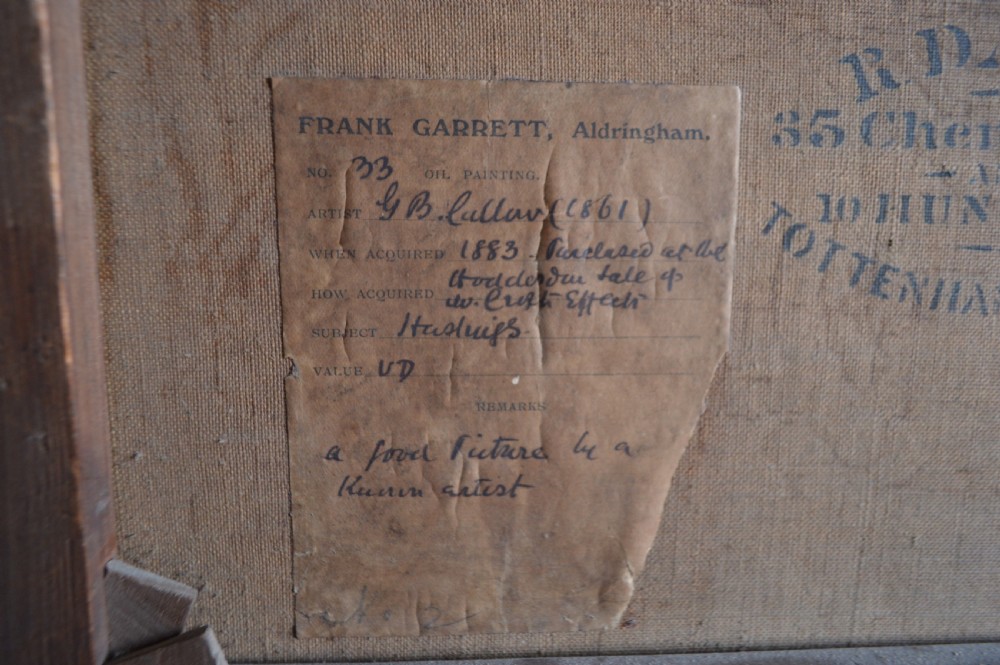 FRANK GARRETT, Aldringham.
NO. 33 OIL PAINTING.
ARTIST G B. Callow (1861)
WHEN ACQUIRED 1883 - Purchased at the
HOW ACQUIRED Hoddesdon Sale of
Effects
SUBJECT Hastings
VALUE UD
REMARKS
a good Picture by a
Known artist
R D
85 Cher
10 HUN
TOTTENHA